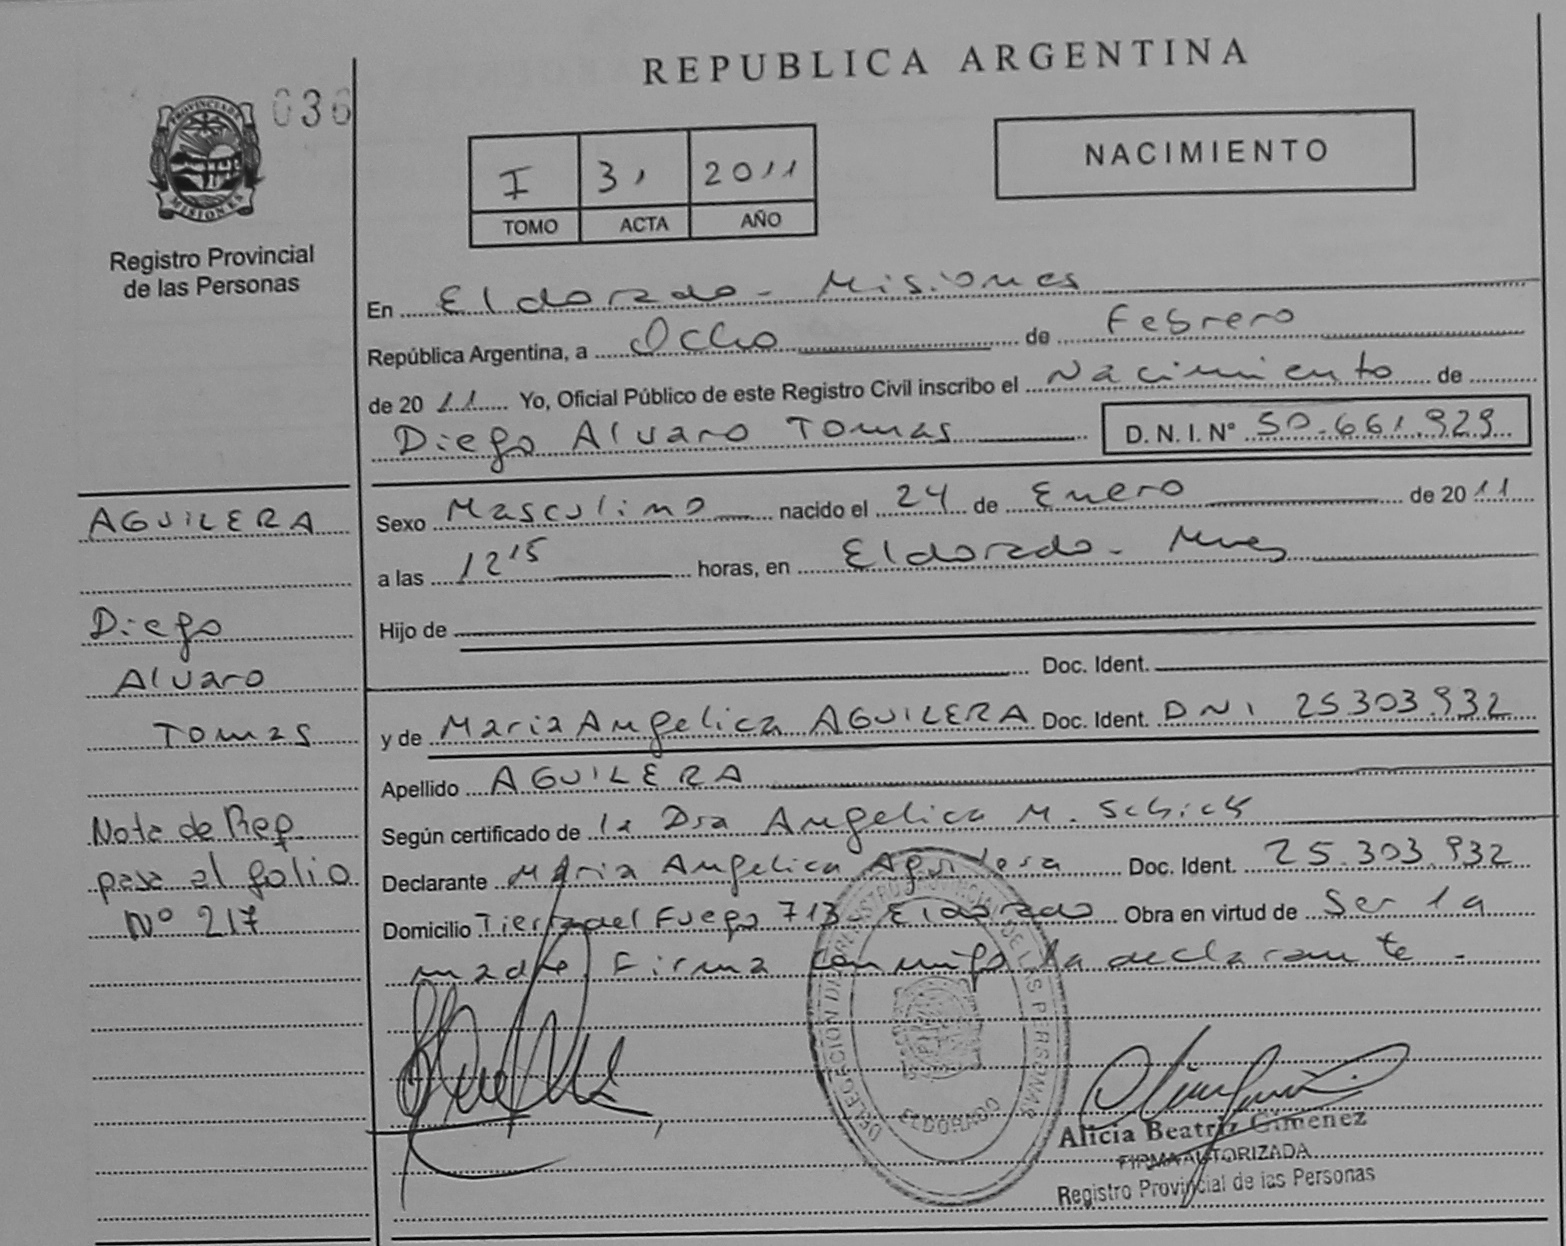 REPUBLICA ARGENTINA
036
PROVINCIA DE MISIONES
Registro Provincial
de las Personas
I 31 2011
TOMO ACTA AÑO
NACIMIENTO
En Eldorado - Misiones
República Argentina, a Ocho de Febrero
de 2011 Yo, Oficial Público de este Registro Civil inscribo el Nacimiento de
Diego Alvaro Tomas D. N. I. N° 50.661.929
Sexo Masculino nacido el 24 de Enero de 2011
a las 12 15 horas, en Eldorado - Mnes
Hijo de
Doc. Ident.
y de Maria Angelica AGUILERA Doc. Ident. DNI 25303.932
Apellido AGUILERA
Según certificado de la Dra Angelica M. Schick
Declarante Maria Angelica Aguilera Doc. Ident. 25.303.932
Domicilio Tierra del Fuego 713 - Eldorado Obra en virtud de Ser la
madre. Firma conmigo la declarante -
AGUILERA
Diego
Alvaro
Tomas
Nota de Ref
pasa al folio
Nº 217
DELEGACION DEL REGISTRO PROVINCIAL DE LAS PERSONAS
ELDORADO
Alicia Beatriz Gimenez
FIRMA AUTORIZADA
Registro Provincial de las Personas